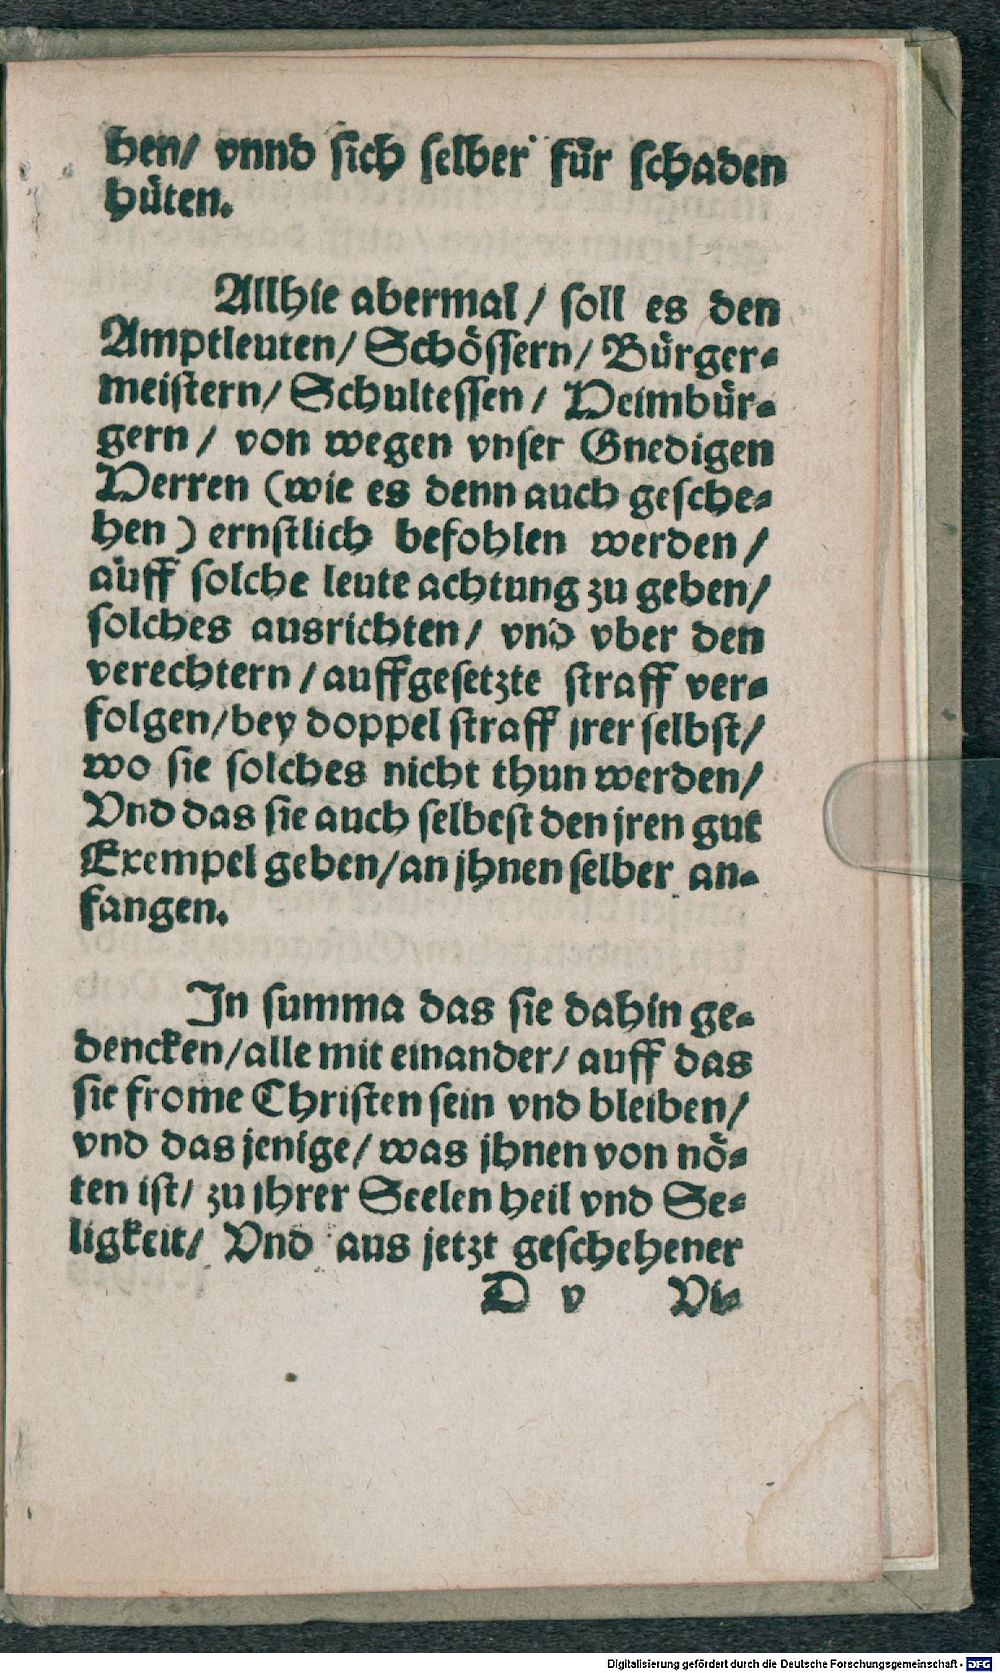 hen/ vnnd sich selber für schaden
hüten.
Allhie abermal / soll es den
Amptleuten/ Schössern/ Bürger-
meistern/ Schultessen / Heimbür-
gern / von wegen vnser Gnedigen
Herren (wie es denn auch gesche-
hen) ernstlich befohlen werden /
auff solche leute achtung zu geben/
solches ausrichten/ vnd vber den
verechtern / auffgesetzte straff ver-
folgen/bey doppel straff jrer selbst/
wo sie solches nicht thun werden/
Vnd das sie auch selbest den jren gut
Exempel geben/an jhnen selber an-
fangen.
In summa das sie dahin ge-
dencken/alle mit einander/ auff das
sie frome Christen sein vnd bleiben/
vnd das jenige/ was jhnen von nö-
ten ist/ zu jhrer Seelen heil vnd Se-
ligkeit/ Vnd aus jetzt geschehener
D v Vi-
Digitalisierung gefördert durch die Deutsche Forschungsgemeinschaft - DFG